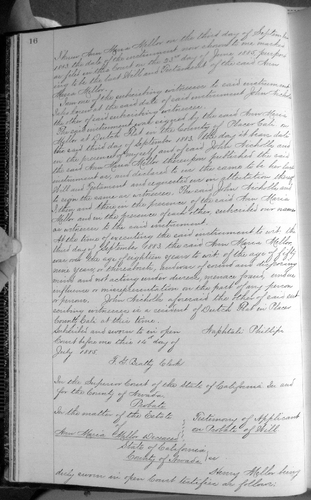 16
I knew Ann Maria Mellor on the third day of September
1883 the date of the instrument now shown to me marked
as filed in this Court on the 23d day of June 1885 purport-
ing to be the last Will and Testament of the said Ann
Maria Mellor.
I am one of the subscribing witnesses to said instrument
I also knew at the date of said instrument John Nicholls
the other of said subscribing witnesses.
The said instrument was signed by the said Ann Maria
Mellor at Dutch Flat in the County of Placer Cal. on
the said third day of September 1883 the day it bears date
in the presence of myself and of said John Nicholls and
the said Ann Maria Mellor thereupon published the said
instrument as, and declared to us the same to be her last
Will and Testament and requested us in attestation thereof
to sign the same as witnesses. The said John Nicholls and
I then and there in the presence of the said Ann Maria
Mellor and in the presence of each other, subscribed our names
as witnesses to the said instrument.
At the time of executing the said instrument to wit: the
third day of September 1883 the said Ann Maria Mellor
was over the age of eighteen years to wit: of the age of fifty
nine years or thereabouts, and was of sound and disposing
mind and not acting under duress, menace, fraud, undue
influence or misrepresentation on the part of any person
or persons. John Nicholls aforesaid the other of said sub-
scribing witnesses is a resident of Dutch Flat in Placer
County Cal. at this time.
Subscribed and sworn to in open Naphtali Phillips
Court before me this 16th day of
July 1885
Clerk
In the Superior Court of the State of California In and
for the County of Nevada
Probate
In the matter of the Estate
of
Ann Maria Mellor Deceased
Testimony of Applicant
on Probate of Will
State of California
County of Nevada ss
Henry Mellor being
duly sworn in open Court testifies as follows: